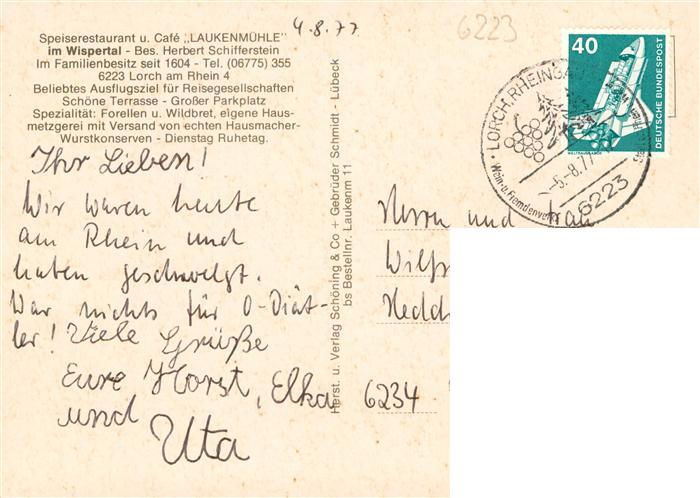 Speiserestaurant u. Café „LAUKENMÜHLE"
im Wispertal - Bes. Herbert Schifferstein
Im Familienbesitz seit 1604 - Tel. (06775) 355
6223 Lorch am Rhein 4
Beliebtes Ausflugsziel für Reisegesellschaften
Schöne Terrasse - Großer Parkplatz
Spezialität: Forellen u. Wildbret, eigene Haus-
metzgerei mit Versand von echten Hausmacher-
Wurstkonserven - Dienstag Ruhetag.
4.8.77
Ihr Lieben!
Wir waren heute
am Rhein und
haben geschwelgt.
War nichts für O-Diät-
ler! Viele Grüße
Eure Horst, Elka
und
Uta
Herst. u. Verlag Schöning & Co + Gebrüder Schmidt - Lübeck
bs Bestellnr. Laukenm 11
6223
40
DEUTSCHE BUNDESPOST
WELTRAUMLABOR
LORCH, RHEINGAU
-5.-8.77
6223
Wein-u. Fremdenver
Herrn und Frau
Wilf
Hedd
6234